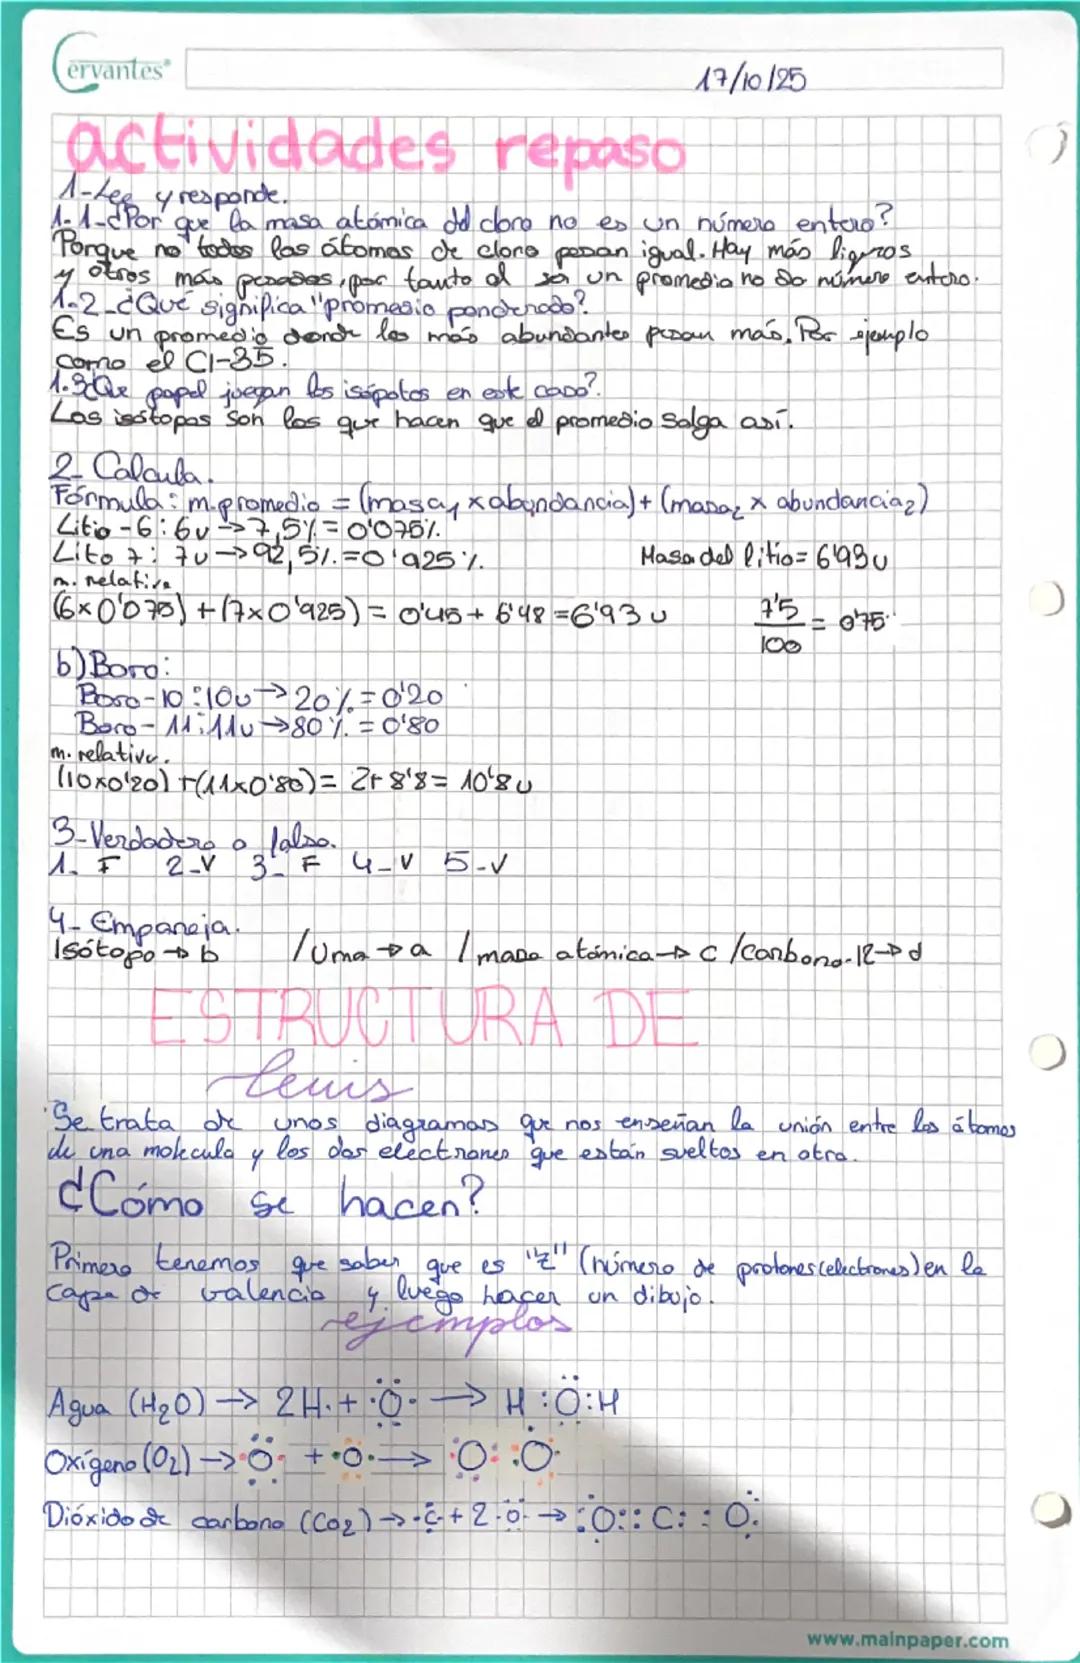 Cervantes®
17/10/25
actividades repaso
1-Lee y responde.
1.1-¿Por que la masa atómica del cloro no es un número entero?
Porque no todos los átomos de cloro pesan igual. Hay más ligeros
y otros más pesados, por tanto al ser un promedio no da número entero.
1.2-¿Qué significa "promedio ponderado?
Es un promedio donde los más abundantes pesan más. Por ejemplo
como el Cl-35.
1.3¿Que papel juegan los isópotos en este caso?
Los isótopos son los que hacen que el promedio salga así.
2- Calcula.
Fórmula: m.promedio = (masa₁ x abundancia)+(masa₂ x abundancia₂)
Litio-6: 6u → 7,5% = 0'075%.
Lito 7: 7u → 92,5%. = 0'925%.
Masa del litio = 6'93u
m. relativa
(6x0'075)+(7x0'925) = 0'45 + 6'48 = 6'93 u
7'5/100 = 0'75
b) Boro:
Boro-10: 10u → 20% = 0'20
Boro-11: 11u → 80% = 0'80
m. relativa.
(10x0'20)+(11x0'80) = 2+8'8 = 10'8u
3-Verdadero o falso.
1. F 2-V 3- F 4-V 5-V
4- Empareja.
Isótopo → b /Uma → a / masa atómica → c /Carbono-12 → d
ESTRUCTURA DE
lewis
Se trata de unos diagramas que nos enseñan la unión entre los átomos
de una molecula y los dos electrones que están sueltos en otro.
¿Cómo se hacen?
Primero tenemos que saber que es "Z" (número de protones(electrones) en la
capa de valencia y luego hacer un dibujo.
ejemplos
Agua (H₂O) → 2H· + ·Ö· → H:Ö:H
Oxígeno (O₂) → ·Ö· + ·O· → :O::O:
Dióxido de carbono (CO₂) → ·C· + 2·Ö· → :O::C::O:
www.mainpaper.com